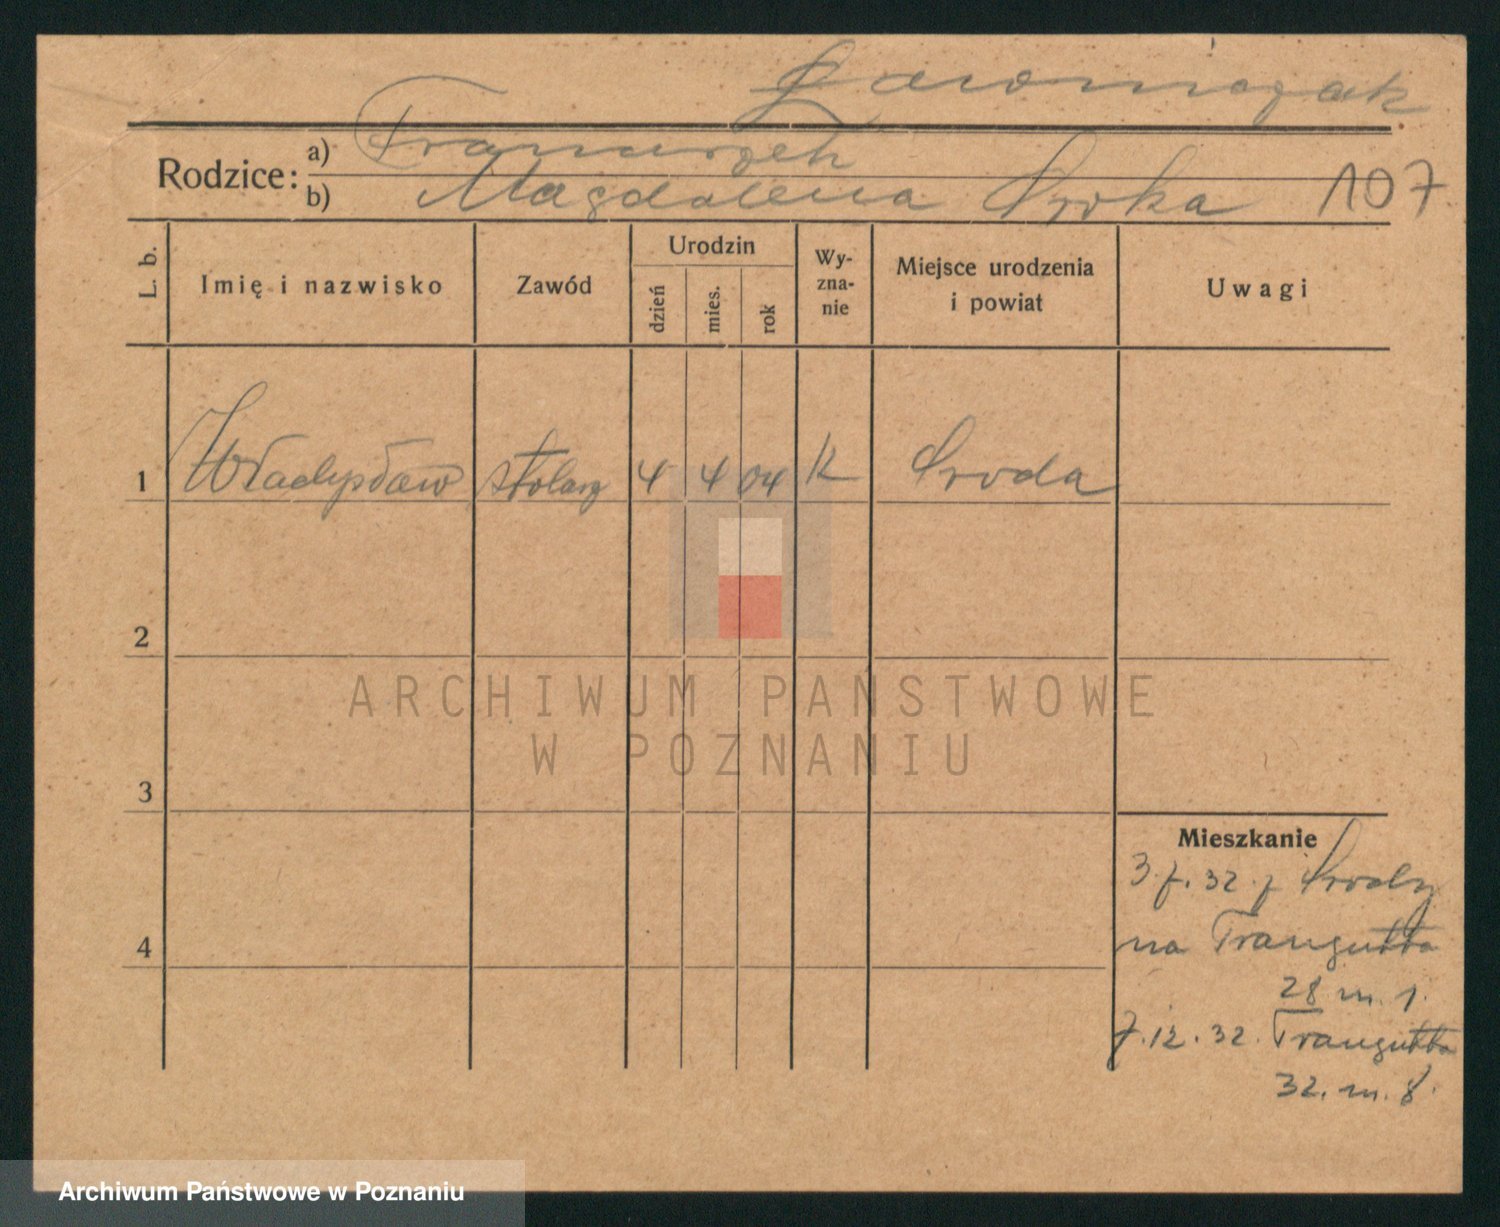 Ławniczak
Rodzice:
a) Franciszek
b) Magdalena Sroka 107
L. b.
Imię i nazwisko
Zawód
Urodzin
dzień
mies.
rok
Wy-
zna-
nie
Miejsce urodzenia
i powiat
Uwagi
1 Władysław stolarz 4 4 04 K Środa
2
3
4
Mieszkanie
3.7.32. z Środy
na Traugutta
28 m. 1.
7.12.32. Traugutta
32. m. 8.
ARCHIWUM PAŃSTWOWE
W POZNANIU
Archiwum Państwowe w Poznaniu